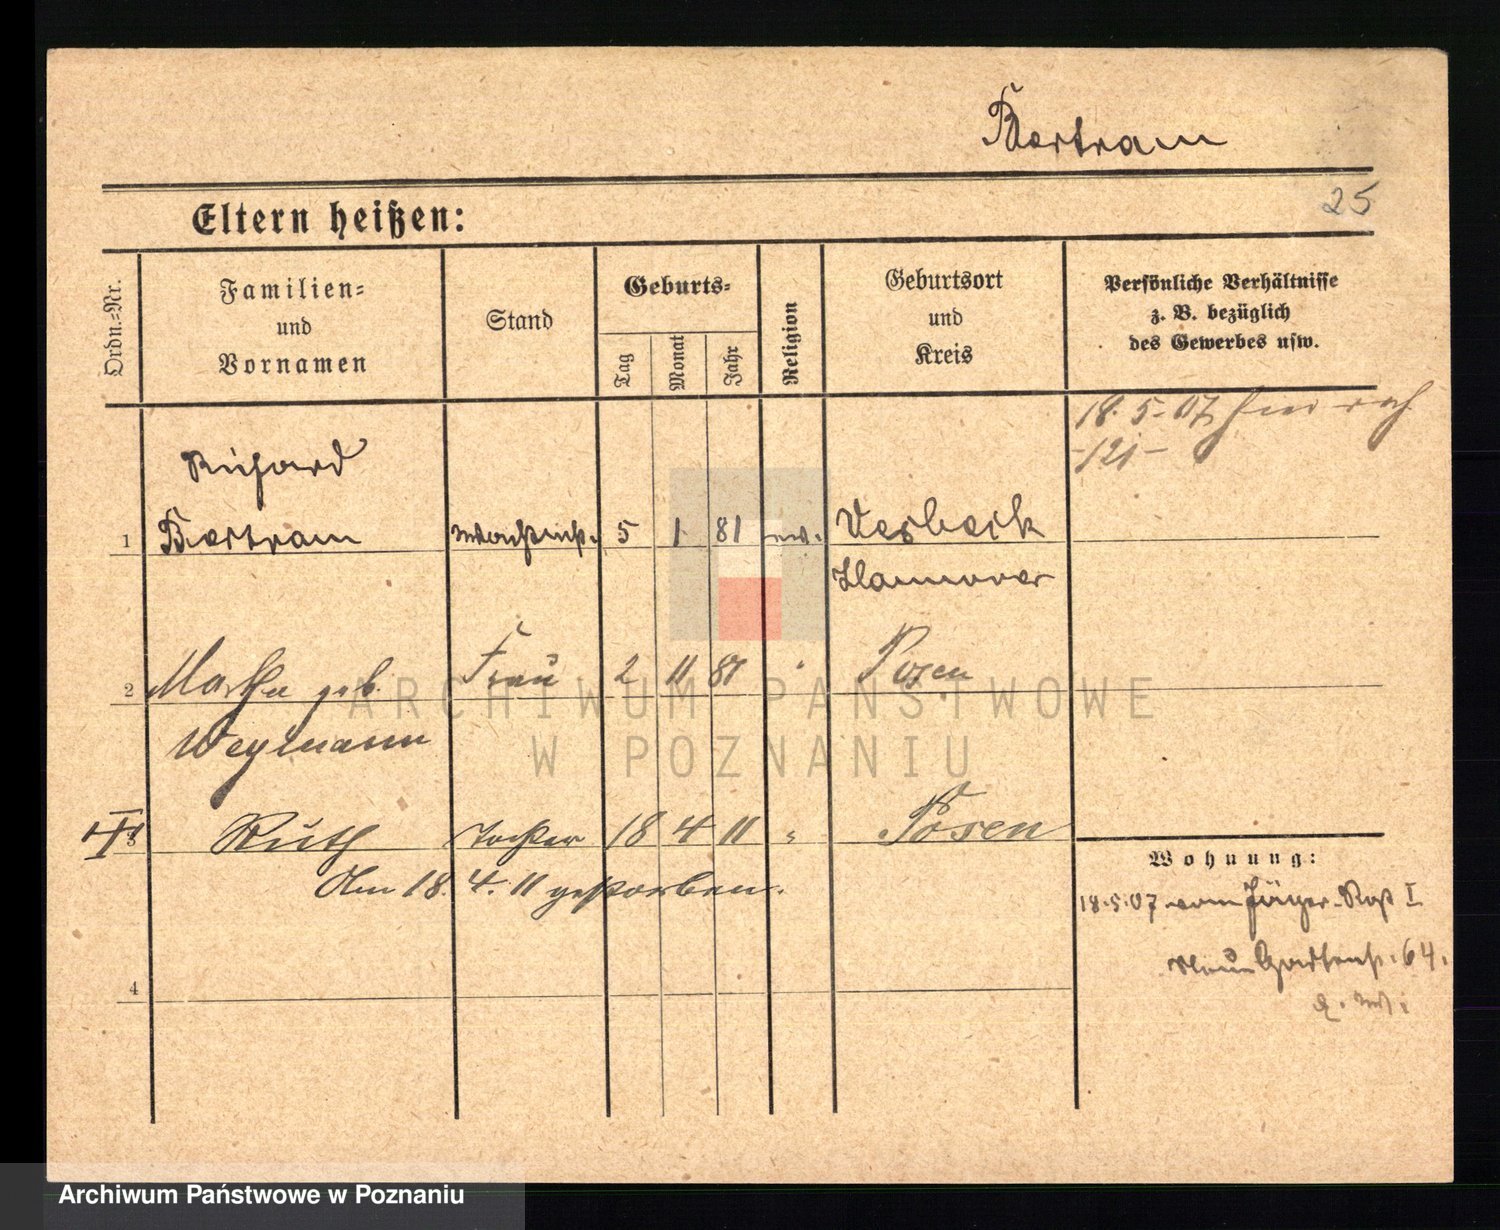 Bertram
25
Eltern heißen:
Ordn.-Nr.
Familien-
und
Vornamen
Stand
Geburts-
Tag
Monat
Jahr
Religion
Geburtsort
und
Kreis
Persönliche Verhältnisse
z. B. bezüglich
des Gewerbes usw.
18. 5. 07
121
Richard
1 Bertram 5 1 81 ev. Verbeck
Hannover
2 Martha geb. Frau 2 11 87 Posen
Weymann
3 Ruth Tochter 18 4 11 " Posen
Am 18. 4. 11 gestorben.
4
Wohnung:
18.5.07 vom Jäger-Rgt I
64.
ARCHIWUM PAŃSTWOWE
W POZNANIU
Archiwum Państwowe w Poznaniu